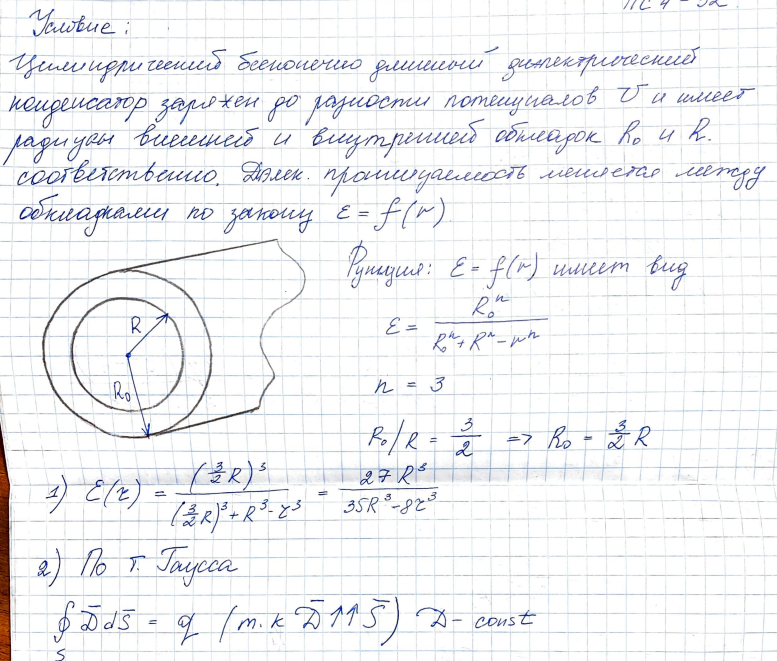 Условие:
Цилиндрический бесконечно длинный диэлектрический
конденсатор заряжен до разности потенциалов U и имеет
радиусы внешней и внутренней обкладок R₀ и R.
соответственно. Диэлек. проницаемость меняется между
обкладками по закону ε = f(r)
Функция: ε = f(r) имеет вид
ε = R₀ⁿ / (R₀ⁿ + Rⁿ - rⁿ)
n = 3
R
R₀
R₀/R = 3/2 => R₀ = 3/2 R
1) ε(r) = (3/2 R)³ / ((3/2 R)³ + R³ - r³) = 27R³ / (35R³ - 8r³)
2) По т. Гаусса
∮_S D̄ dS̄ = q (т.к D̄ ↑↑ S̄) D - const